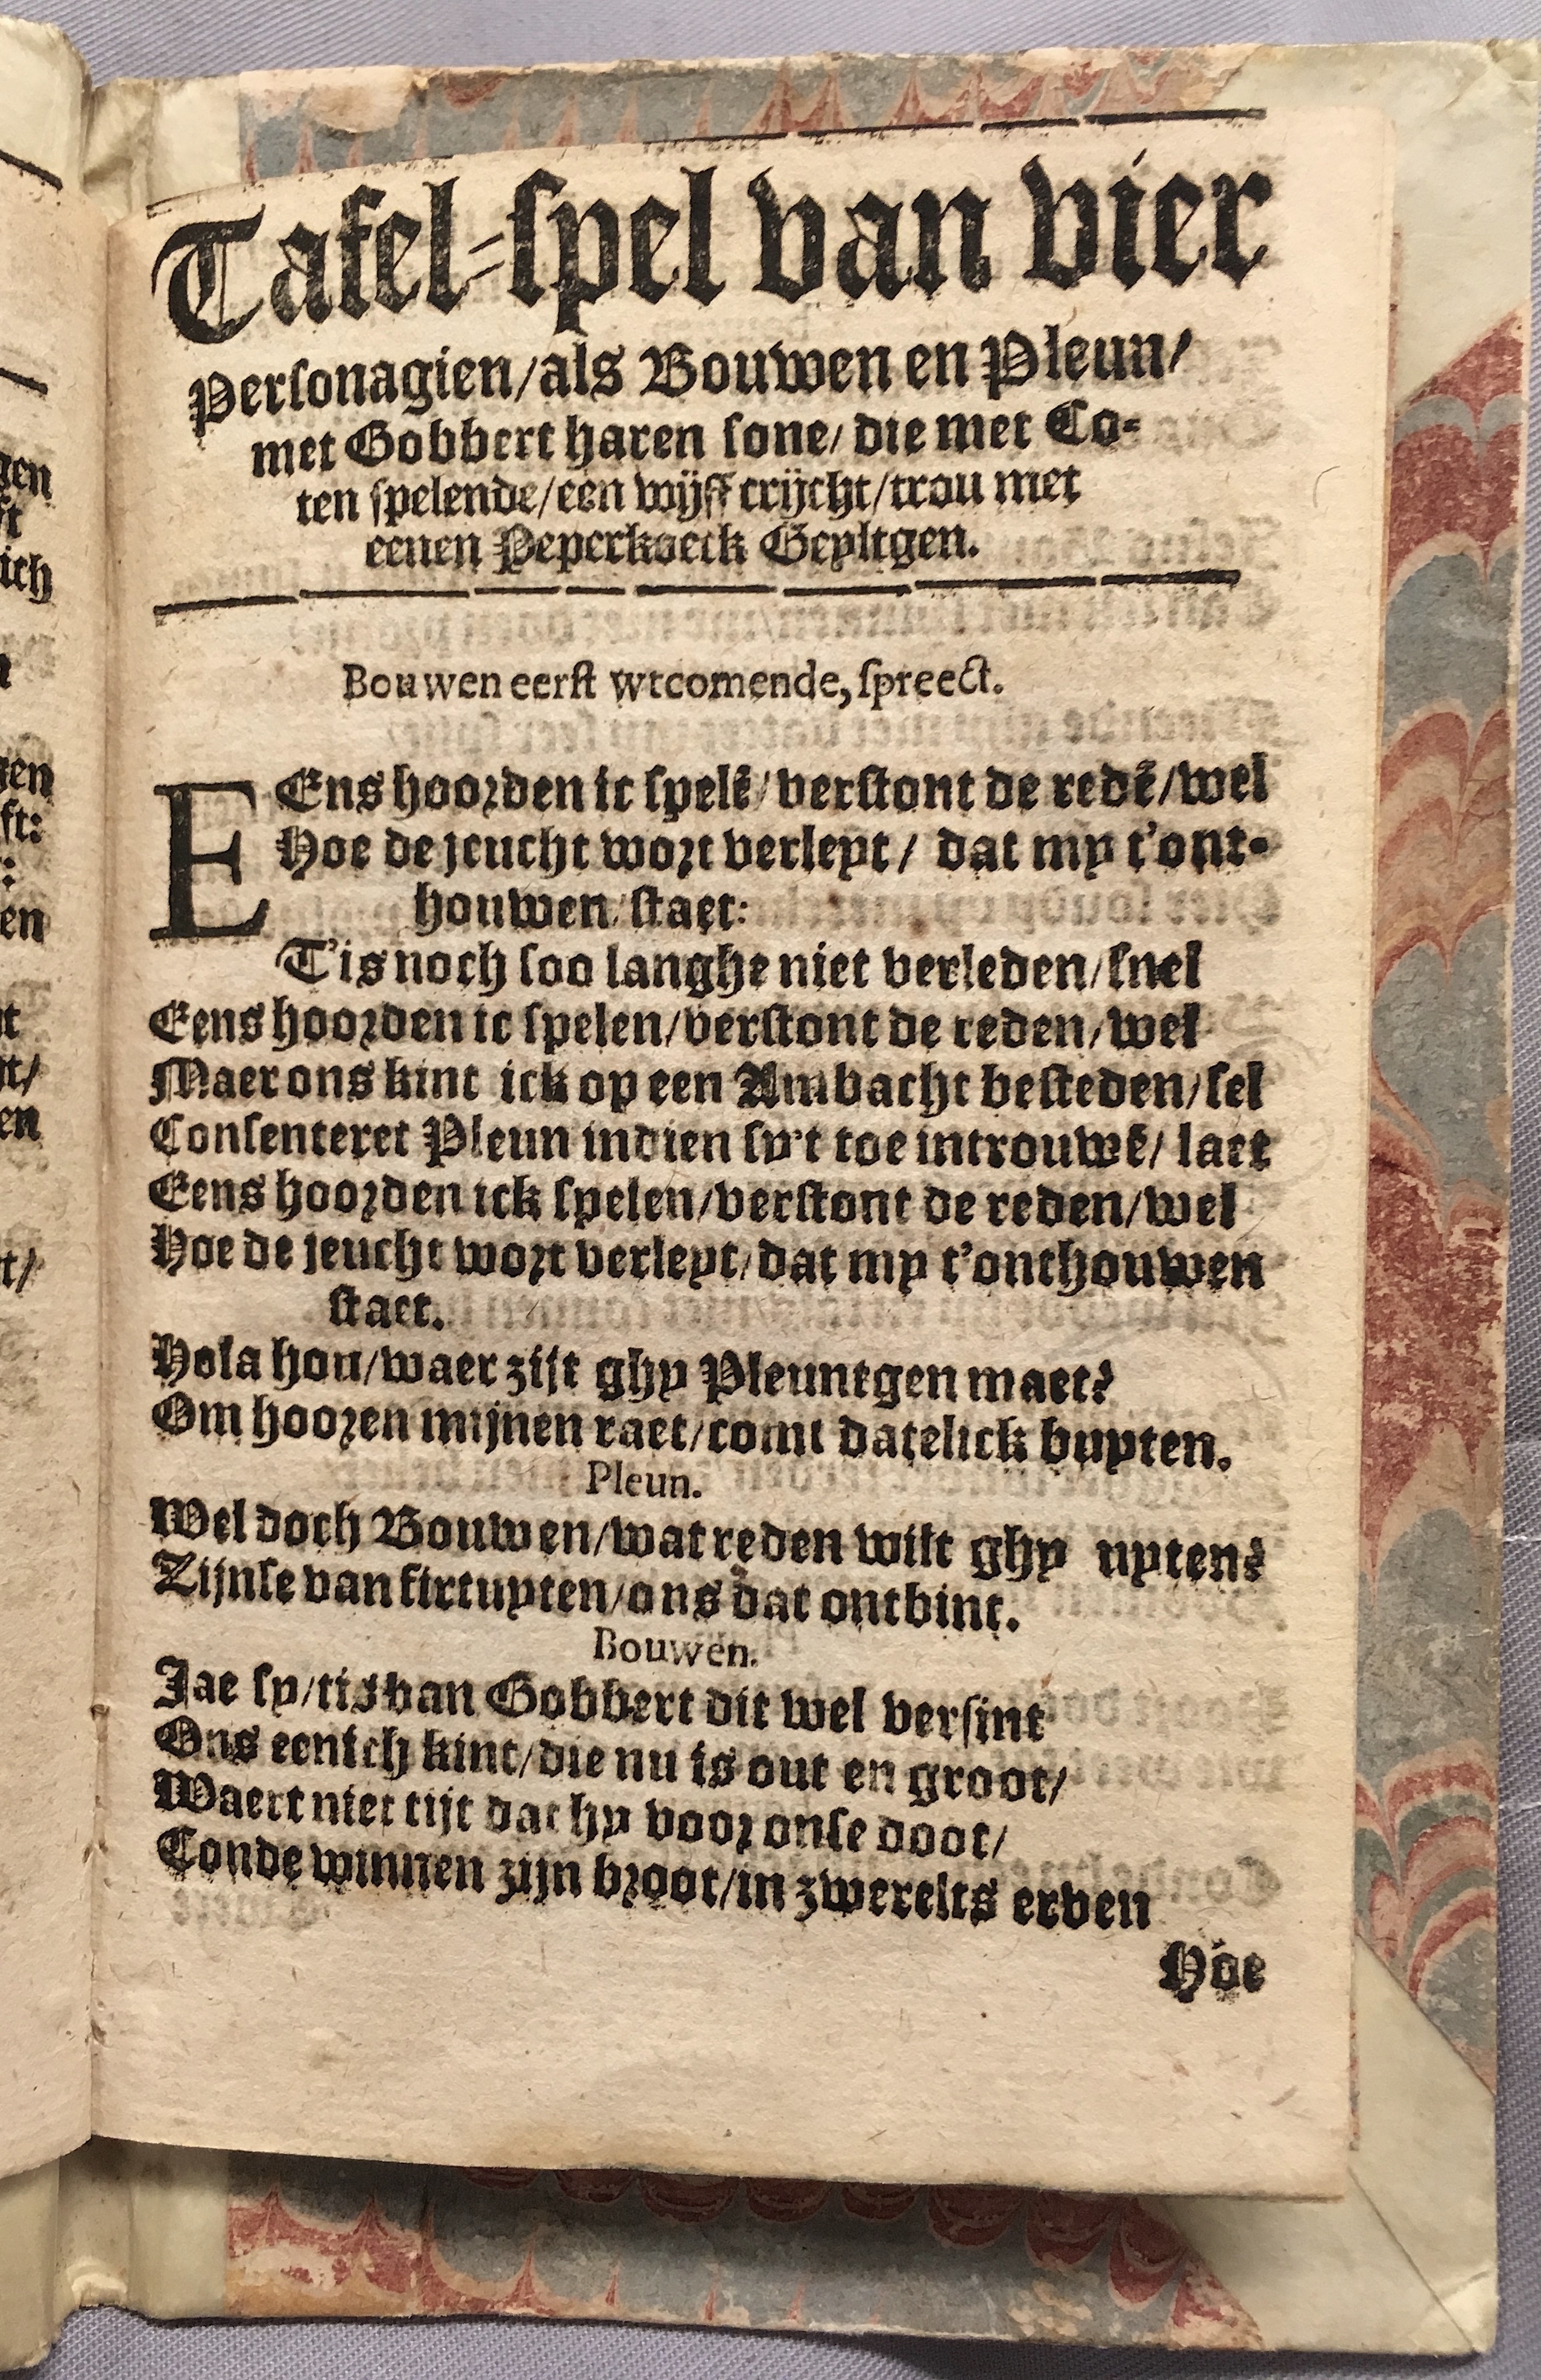 Tafel-spel van vier
Personagien/als Bouwen en Pleun/
met Gobbert haren sone/ die met Co-
ten spelende/een wijff crijcht/trou met
eenen Peperkoeck Geyltgen.
Bouwen eerst wtcomende, spreect.
EEns hoorden ic spelē/ verstont de redē/wel
Hoe de jeucht wort verleyt / dat my t'ont-
houwen staet:
T'is noch soo langhe niet verleden/snel
Eens hoorden ic spelen/verstont de reden/wel
Maer ons kint ick op een Ambacht besteden/sel
Consenteret Pleun indien sy't toe introuwē/ laet
Eens hoorden ick spelen/verstont de reden/wel
Hoe de jeucht wort verleyt/dat my t'onthouwen
staet.
Hola hou/waer zijt ghy Pleuntgen maet?
Om hooren mijnen raet/comt datelick buyten.
Pleun.
Wel doch Bouwen/wat reden wilt ghy uyten?
Zijnse van firtuyten/ons dat ontbint.
Bouwen.
Jae sy/tis van Gobbert dit wel versint
Ons eenich kint/die nu is out en groot/
Waert niet tijt dat hy voor onse doot/
Conde winnen zijn broot/in zwerelts erven
Hoe
gen
ft
ich
n
gen
ft:
:
en
t
t/
en
t/